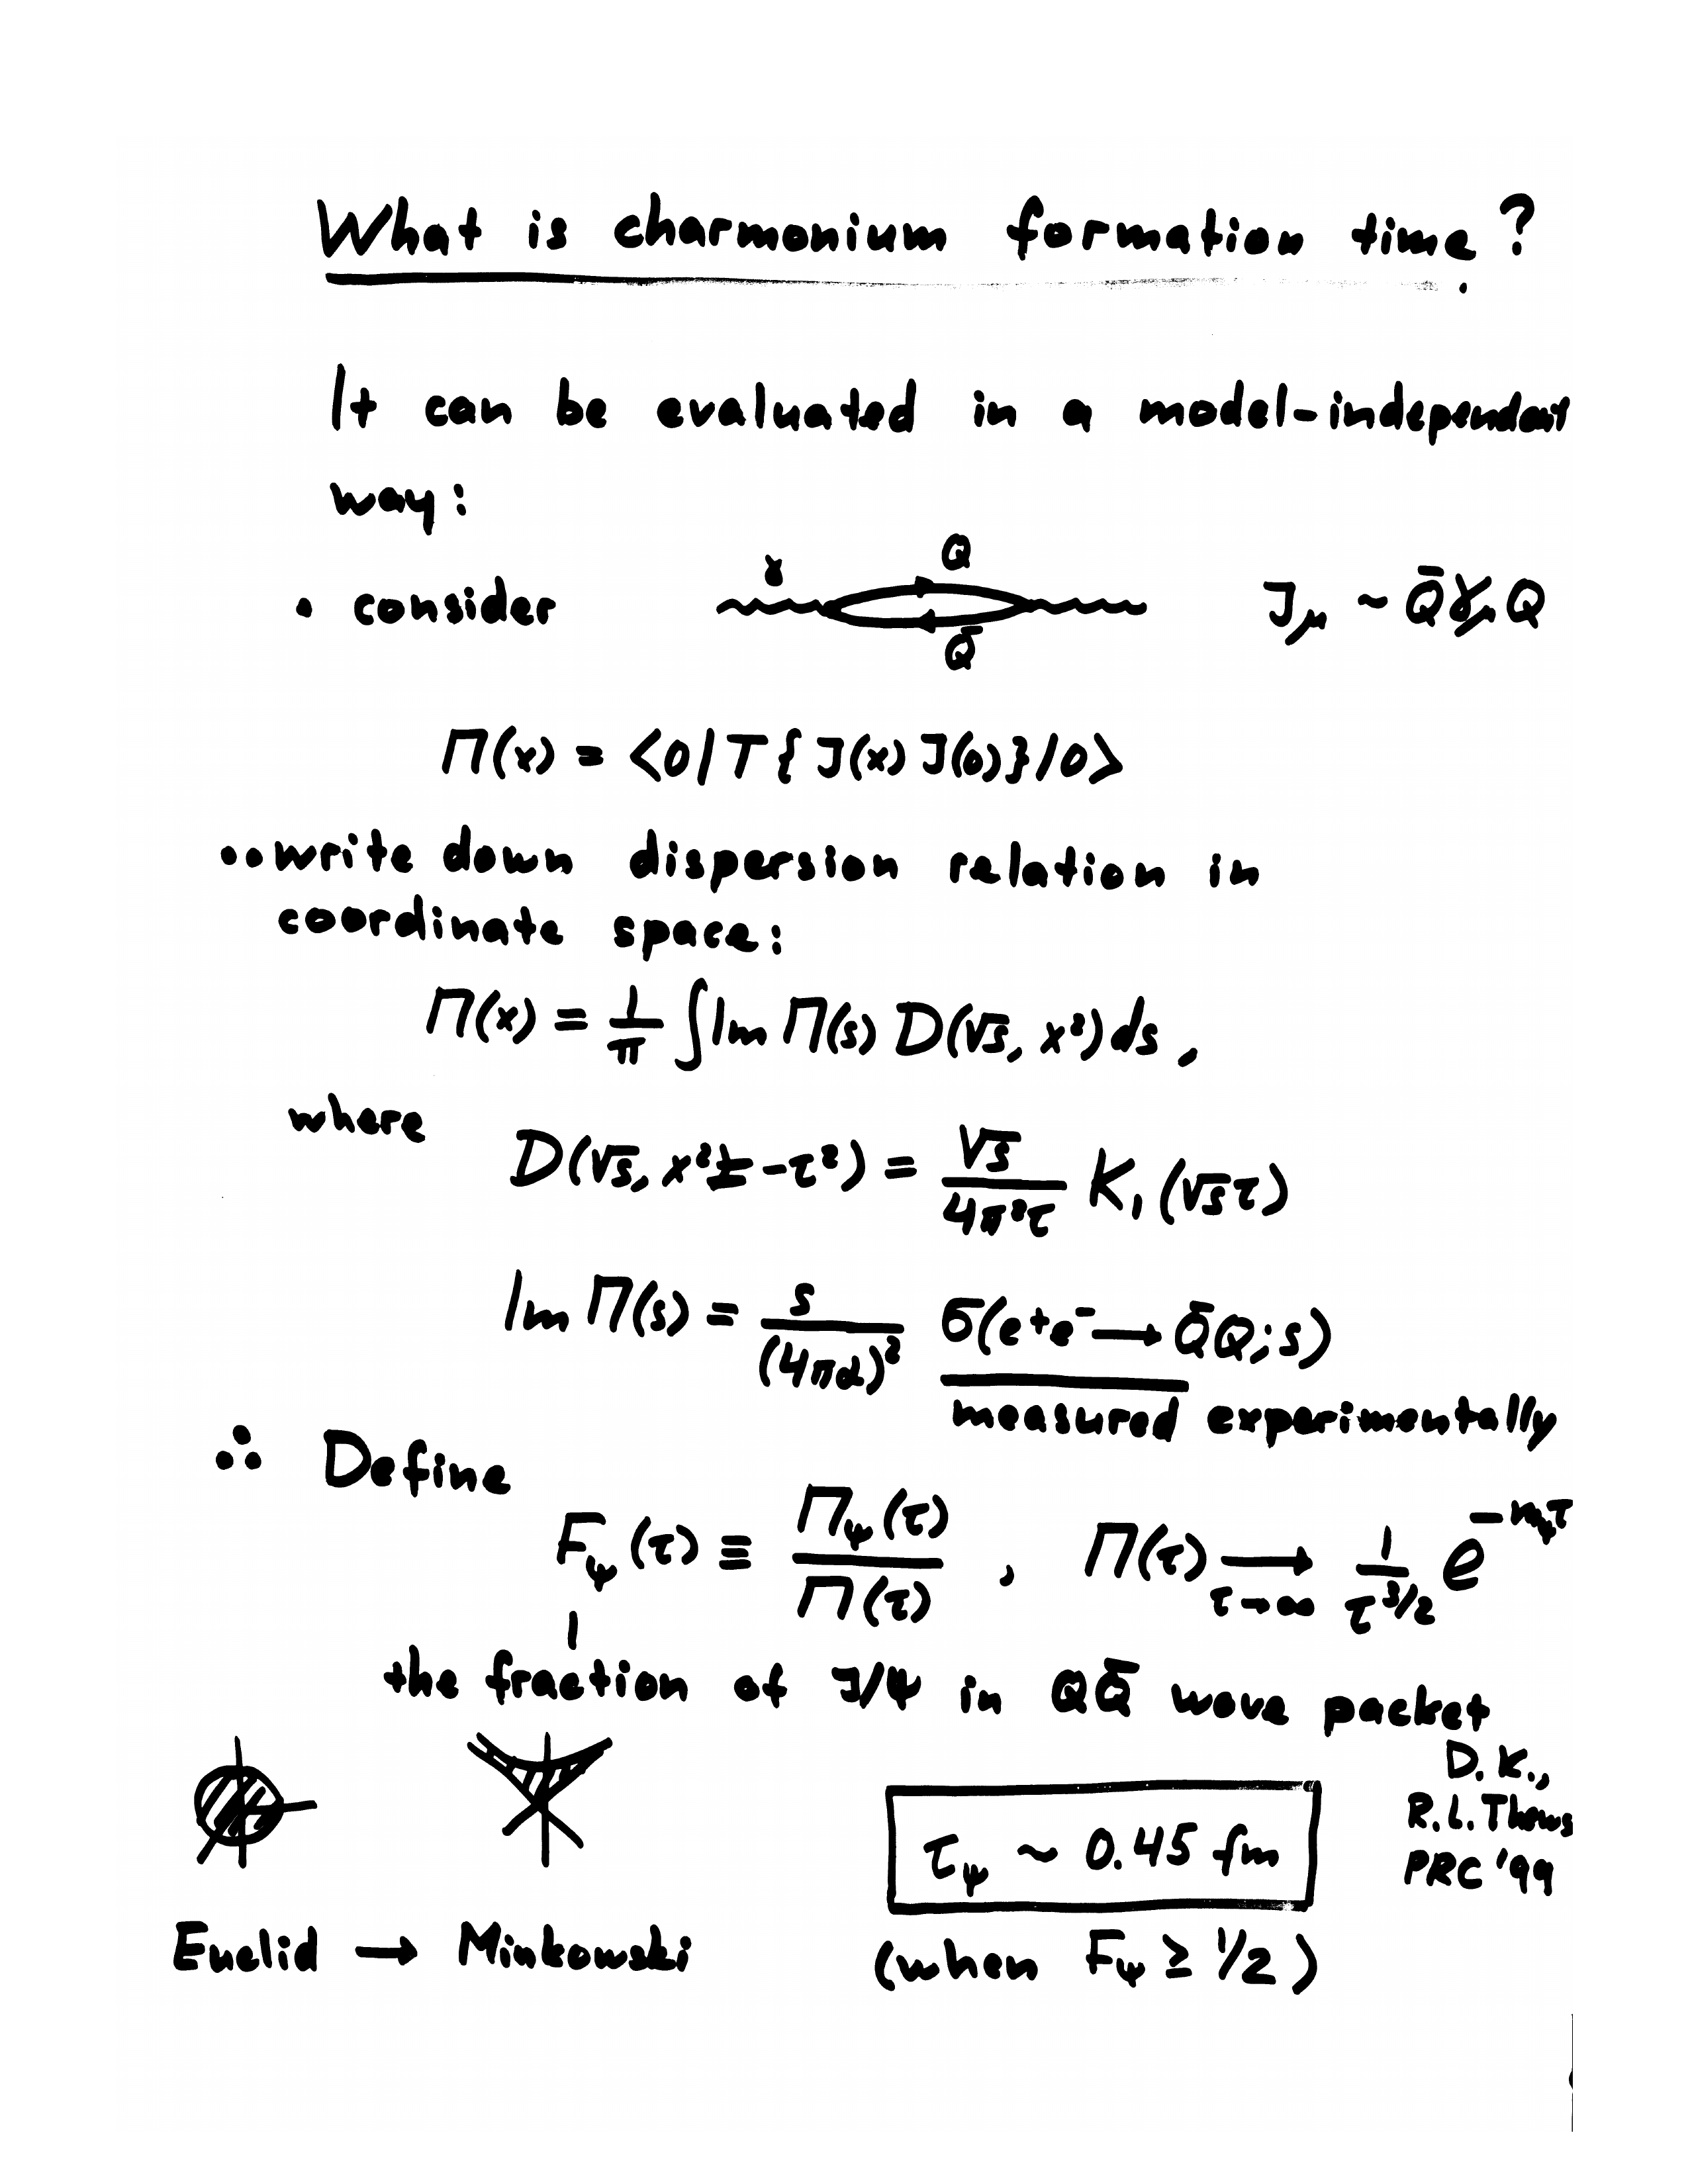 What is charmonium formation time?
It can be evaluated in a model-independent
way:
• consider γ Q Q̄ J_μ ~ Q̄γ_μQ
Π(x) = <0|T{J(x)J(0)}|0>
•• write down dispersion relation in
coordinate space:
Π(x) = 1/π ∫Im Π(s) D(√s, x²)ds,
where
D(√s, x² = -τ²) = √s/(4π²τ) K₁(√sτ)
Im Π(s) = s/(4πα)² σ(e⁺e⁻ → Q̄Q; s)
measured experimentally
∴ Define
F_ψ(τ) ≡ Π_ψ(τ)/Π(τ), Π(τ) → τ→∞ 1/τ^{3/2} e^{-m_ψτ}
the fraction of J/ψ in QQ̄ wave packet
D.K.,
R.L. Thews
PRC '99
τ_ψ ~ 0.45 fm
Euclid → Minkowski (when F_ψ ≥ 1/2)